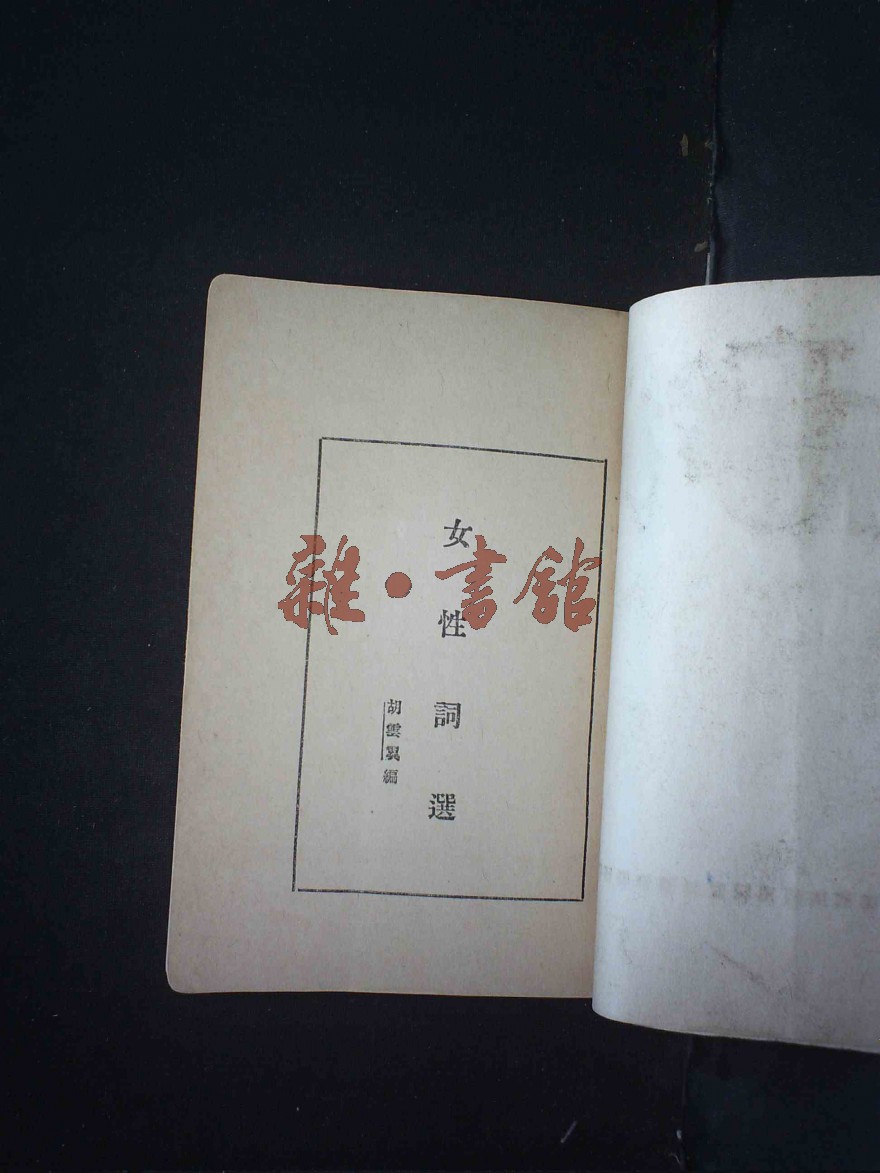 女性詞選
胡雲翼編
雜·書館